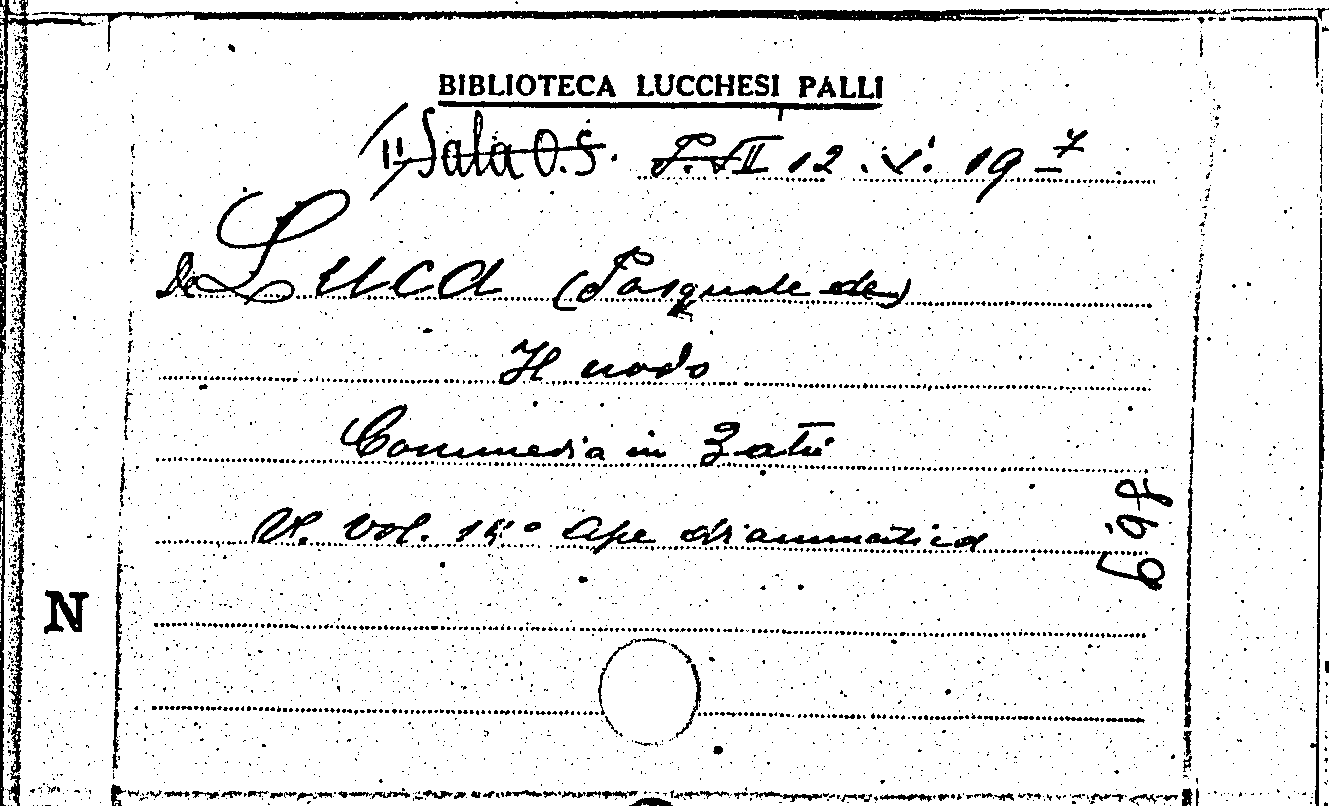 BIBLIOTECA LUCCHESI PALLI
Sala O.S. 12 . S. 19 7
De Luca (Pasquale de)
Il nodo
Commedia in 3 atti
V. vol. 15° Ape drammatica
698
N